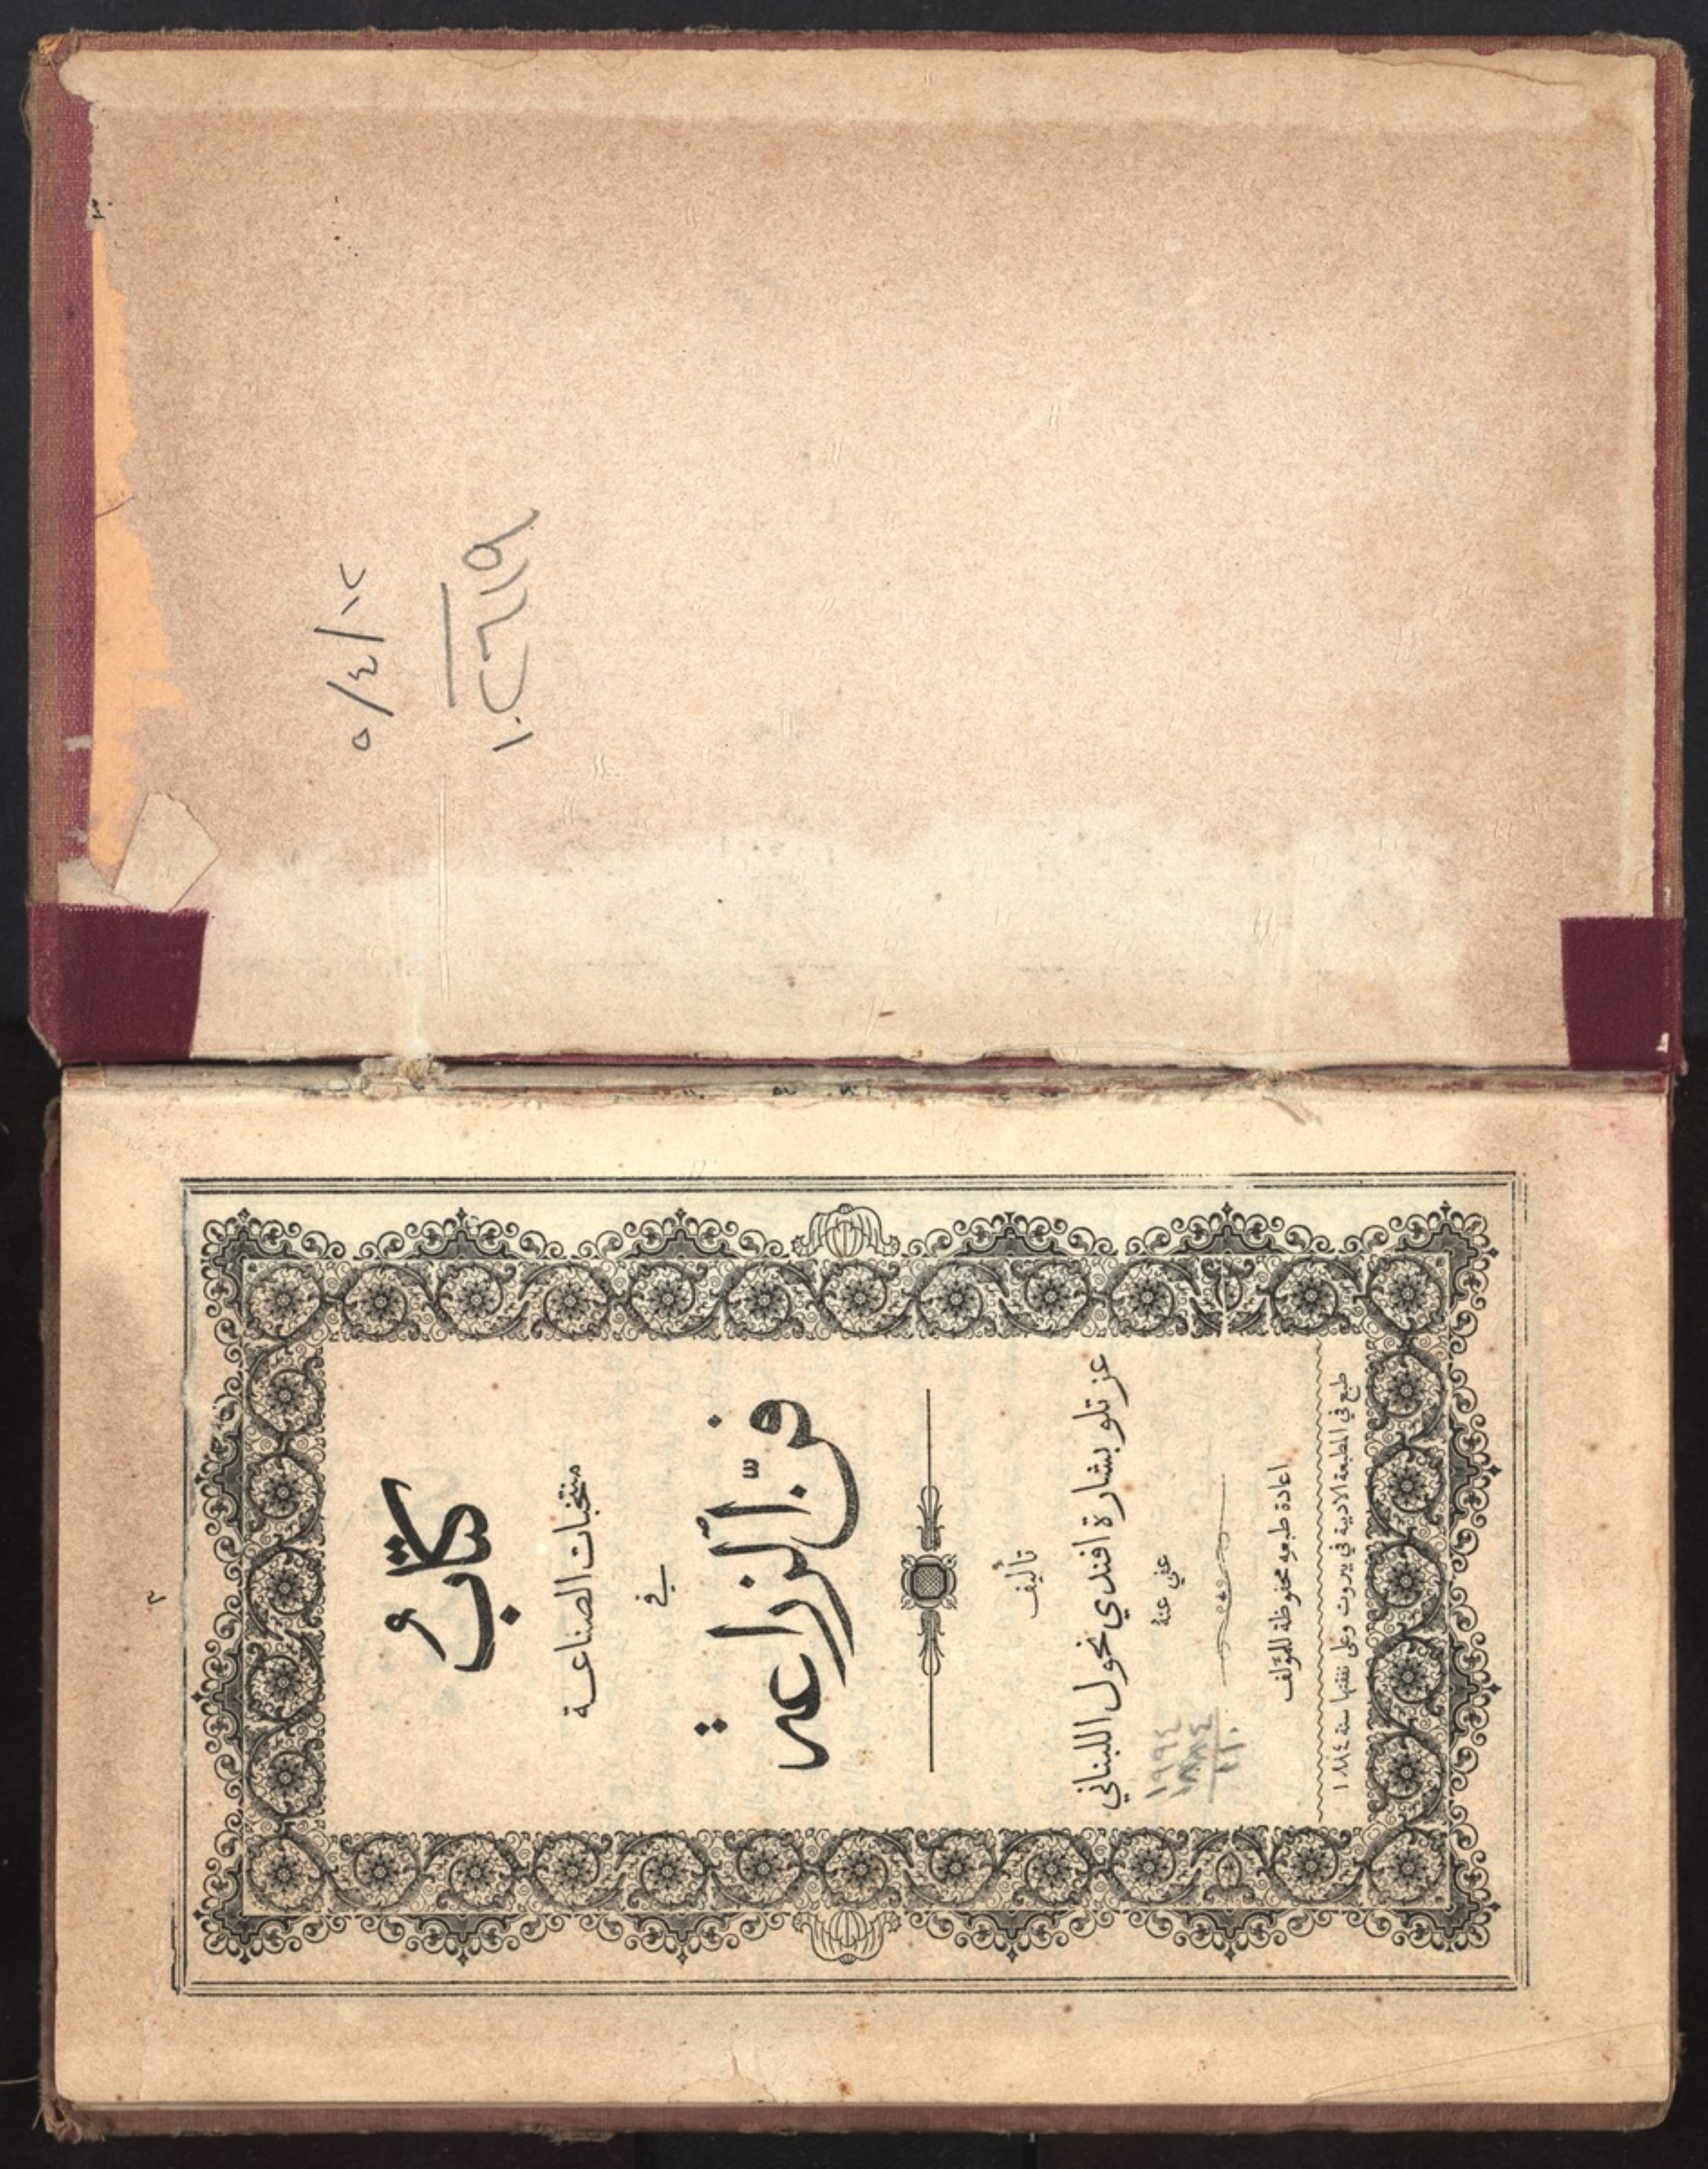 ٥/٤/١٢
١٠٢٦١٩
كتابُ
منتخبات الصناعة
في
فنّ الزراعة
تأليف
عزتلو بشارة افندي نحول اللبناني
عفي عنهُ
١٩٩٤
١٨٨٤
١١٠
اعادة طبعهِ محفوظة للمؤلف
طبع في المطبعة الادبية في بيروت وعلى نفقتها سنة ١٨٨٤